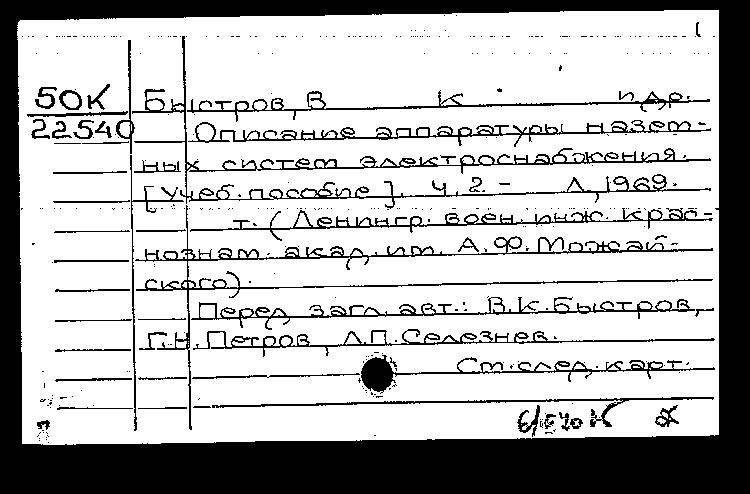 1
50К Быстров, В К и др.
22540 Описание аппаратуры назем-
ных систем электроснабжения.
[Учеб. пособие]. Ч. 2 - Л., 1969.
т. (Ленингр. воен. инж. крас-
нознам. акад. им. А.Ф. Можай-
ского).
Перед загл. авт.: В.К. Быстров,
Г.Н. Петров, Л.П. Селезнев.
См. след. карт.